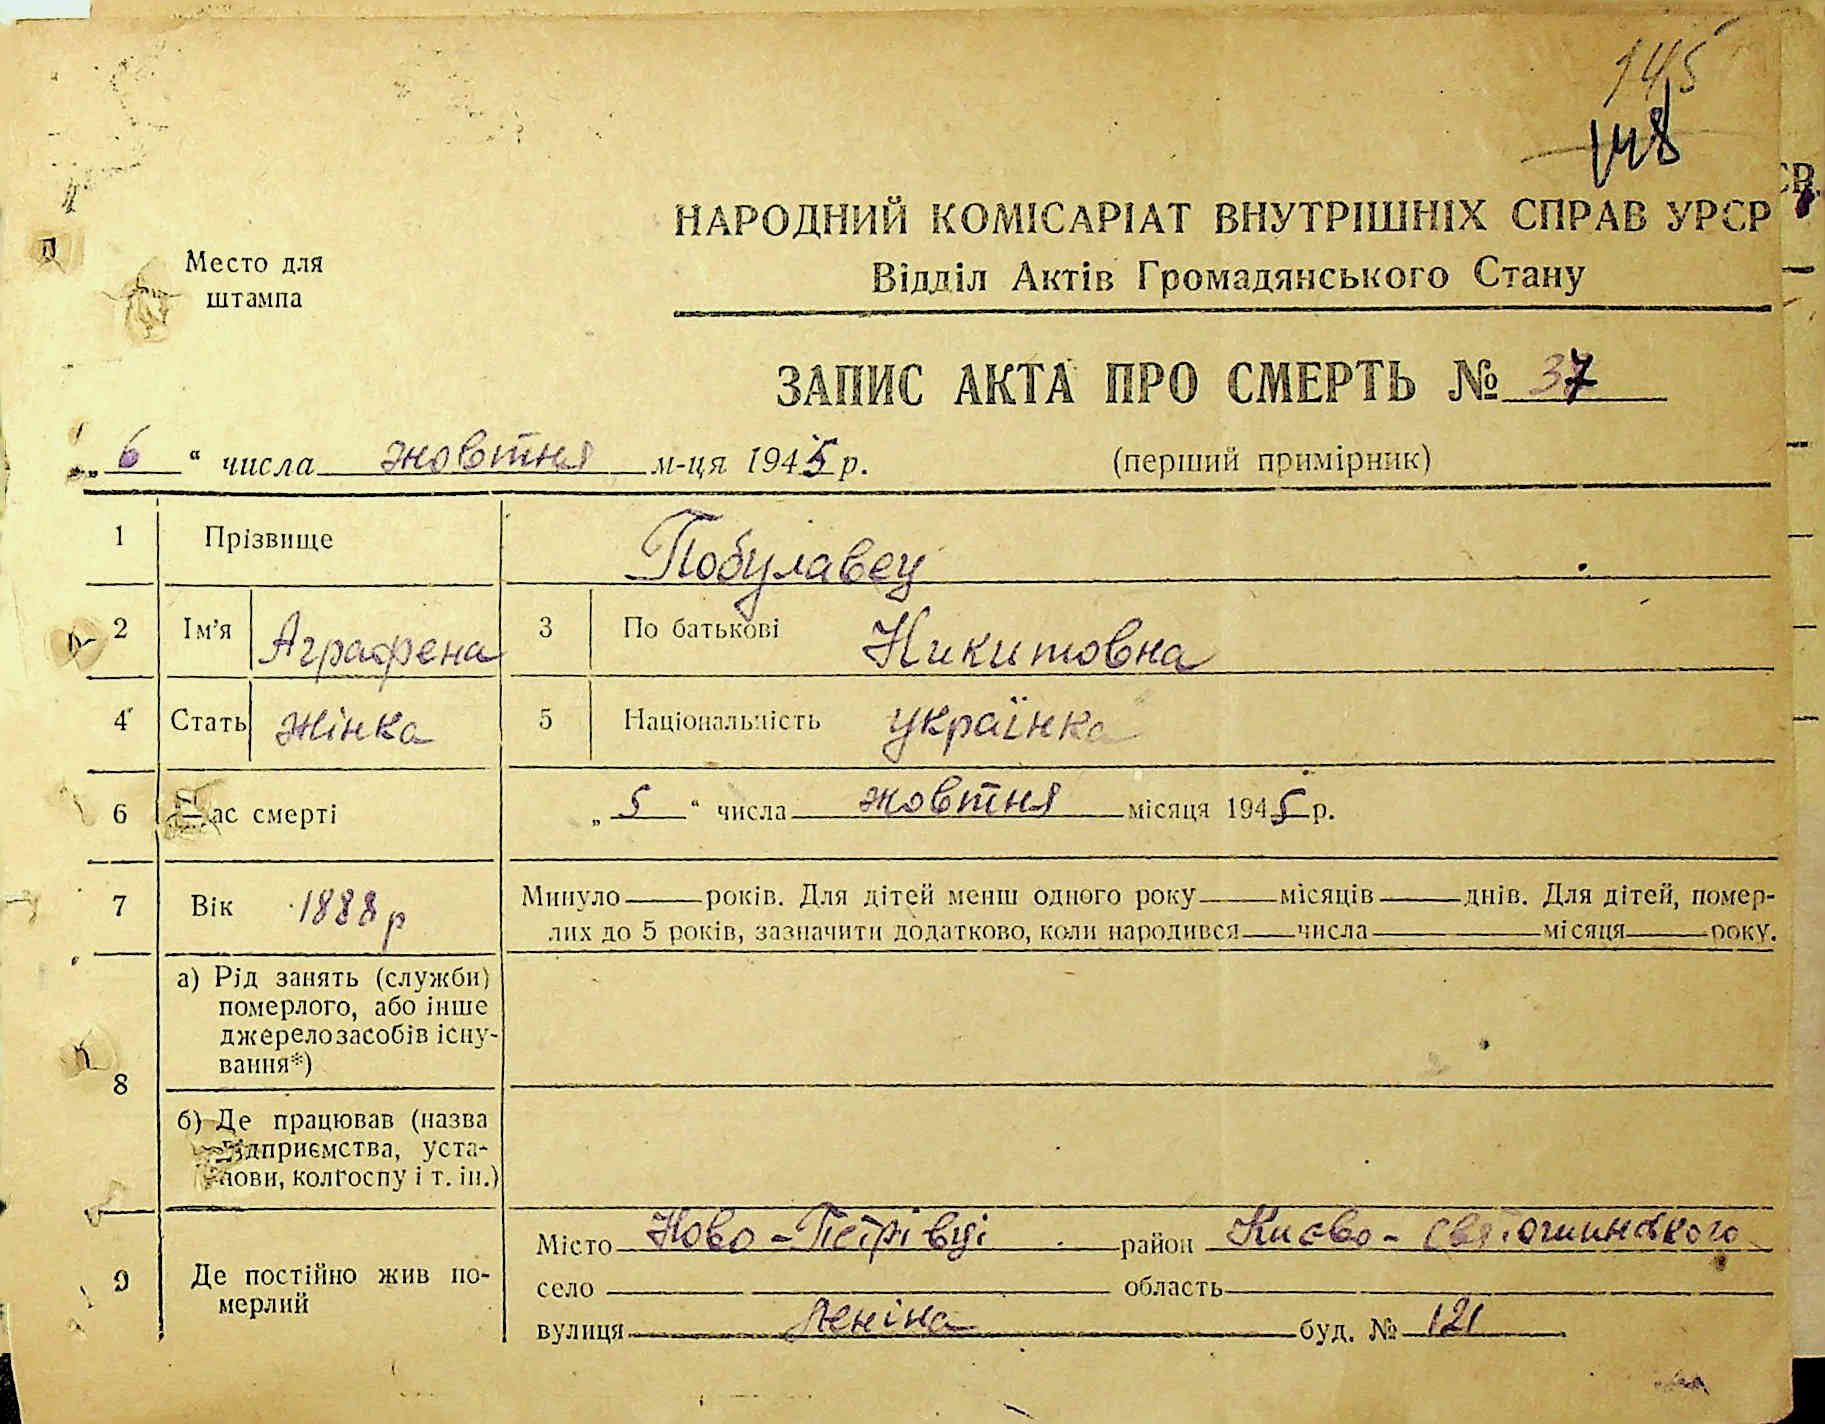 145
148
НАРОДНИЙ КОМІСАРІАТ ВНУТРІШНІХ СПРАВ УРСР
Відділ Актів Громадянського Стану
Место для
штампа
ЗАПИС АКТА ПРО СМЕРТЬ № 37
„ 6 “ числа жовтня м-ця 1945 р.
(перший примірник)
1 Прізвище Побулавец
2 Ім'я Аграфена 3 По батькові Никитовна
4 Стать жінка 5 Національність українка
6 Час смерті „ 5 “ числа жовтня місяця 1945 р.
7 Вік 1888 р Минуло — років. Для дітей менш одного року — місяців — днів. Для дітей, помер-
лих до 5 років, зазначити додатково, коли народився — числа — місяця — року.
8 а) Рід занять (служби)
померлого, або інше
джерело засобів існу-
вання*)
б) Де працював (назва
підприємства, уста-
нови, колгоспу і т. ін.)
9 Де постійно жив по-
мерлий
Місто Ново-Петрівці район Києво-Святошинського
село область
вулиця Леніна буд. № 121